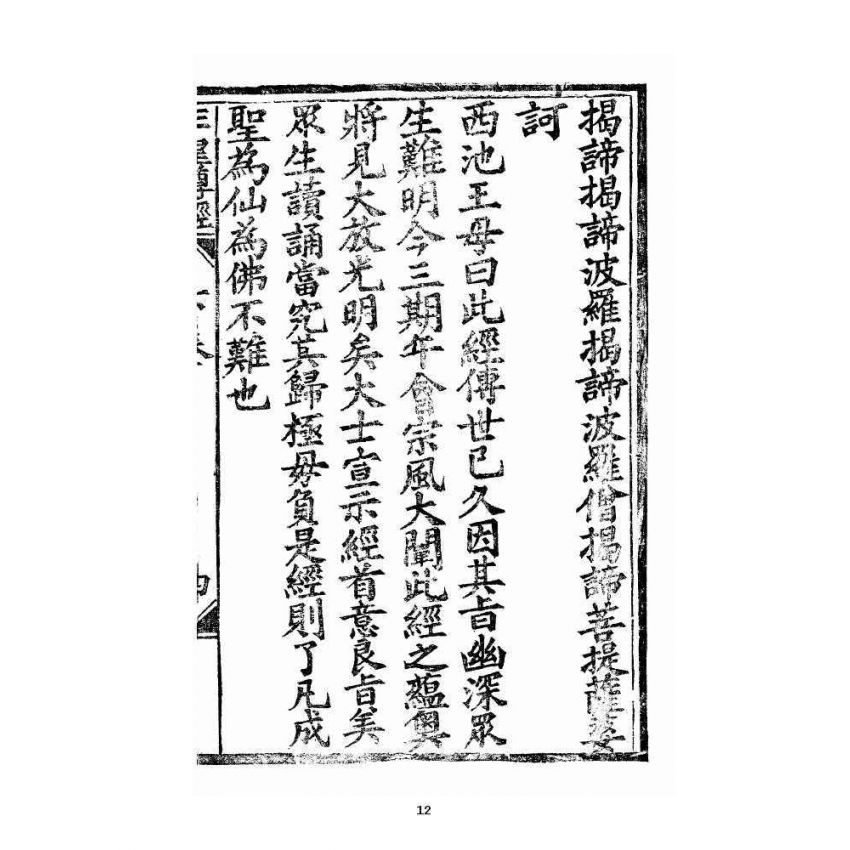 揭諦揭諦波羅揭諦波羅僧揭諦菩提薩婆
訶
西池王母曰此經傳世已久因其旨幽深眾
生難明今三期午會宗風大闡此經之蘊奧
將見大放光明矣大士宣示經首意良旨美
眾生讀誦當究其歸極毋負是經則了凡成
聖為仙為佛不難也
12